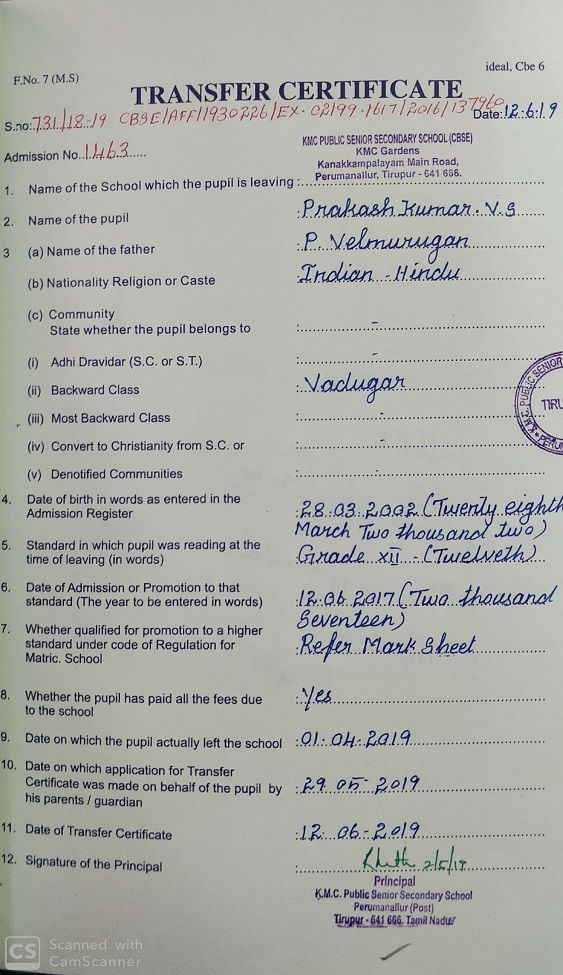 F.No. 7 (M.S)
ideal, Cbe 6
TRANSFER CERTIFICATE
S.no: 731/18-19 CBSE/AFF/1930226/EX-02199-1617/2016/137960 Date: 12-6-19
Admission No. 1463
KMC PUBLIC SENIOR SECONDARY SCHOOL (CBSE)
KMC Gardens
Kanakkampalayam Main Road,
Perumanallur, Tirupur - 641 666.
1. Name of the School which the pupil is leaving :
2. Name of the pupil : Prakash Kumar. V.S
3 (a) Name of the father : P. Velmurugan
(b) Nationality Religion or Caste : Indian - Hindu
(c) Community
State whether the pupil belongs to : -
(i) Adhi Dravidar (S.C. or S.T.) : -
(ii) Backward Class : Vadugar
(iii) Most Backward Class : -
(iv) Convert to Christianity from S.C. or : -
(v) Denotified Communities : -
K.M.C. PUBLIC SENIOR
TIRU
4. Date of birth in words as entered in the : 28.03.2002 (Twenty eighth
Admission Register March Two thousand two)
5. Standard in which pupil was reading at the : Grade XII - (Twelveth)
time of leaving (in words)
6. Date of Admission or Promotion to that : 12.06.2017 (Two thousand
standard (The year to be entered in words) Seventeen)
7. Whether qualified for promotion to a higher : Refer Mark Sheet
standard under code of Regulation for
Matric. School
8. Whether the pupil has paid all the fees due : Yes
to the school
9. Date on which the pupil actually left the school : 01-04-2019
10. Date on which application for Transfer
Certificate was made on behalf of the pupil by : 29-05-2019
his parents / guardian
11. Date of Transfer Certificate : 12-06-2019
12. Signature of the Principal :
Principal
K.M.C. Public Senior Secondary School
Perumanallur (Post)
Tirupur - 641 666. Tamil Nadu
CS Scanned with
CamScanner